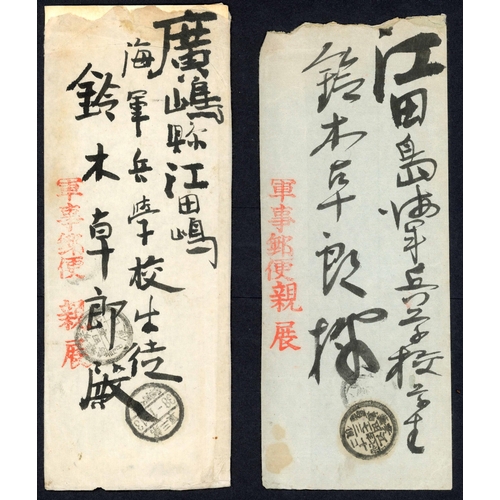 廣嶋縣江田嶋
海軍兵學校生徒
鈴木草郎殿
軍事郵便 親展
江田島海軍兵学校学生
鈴木草郎様
軍事郵便親展